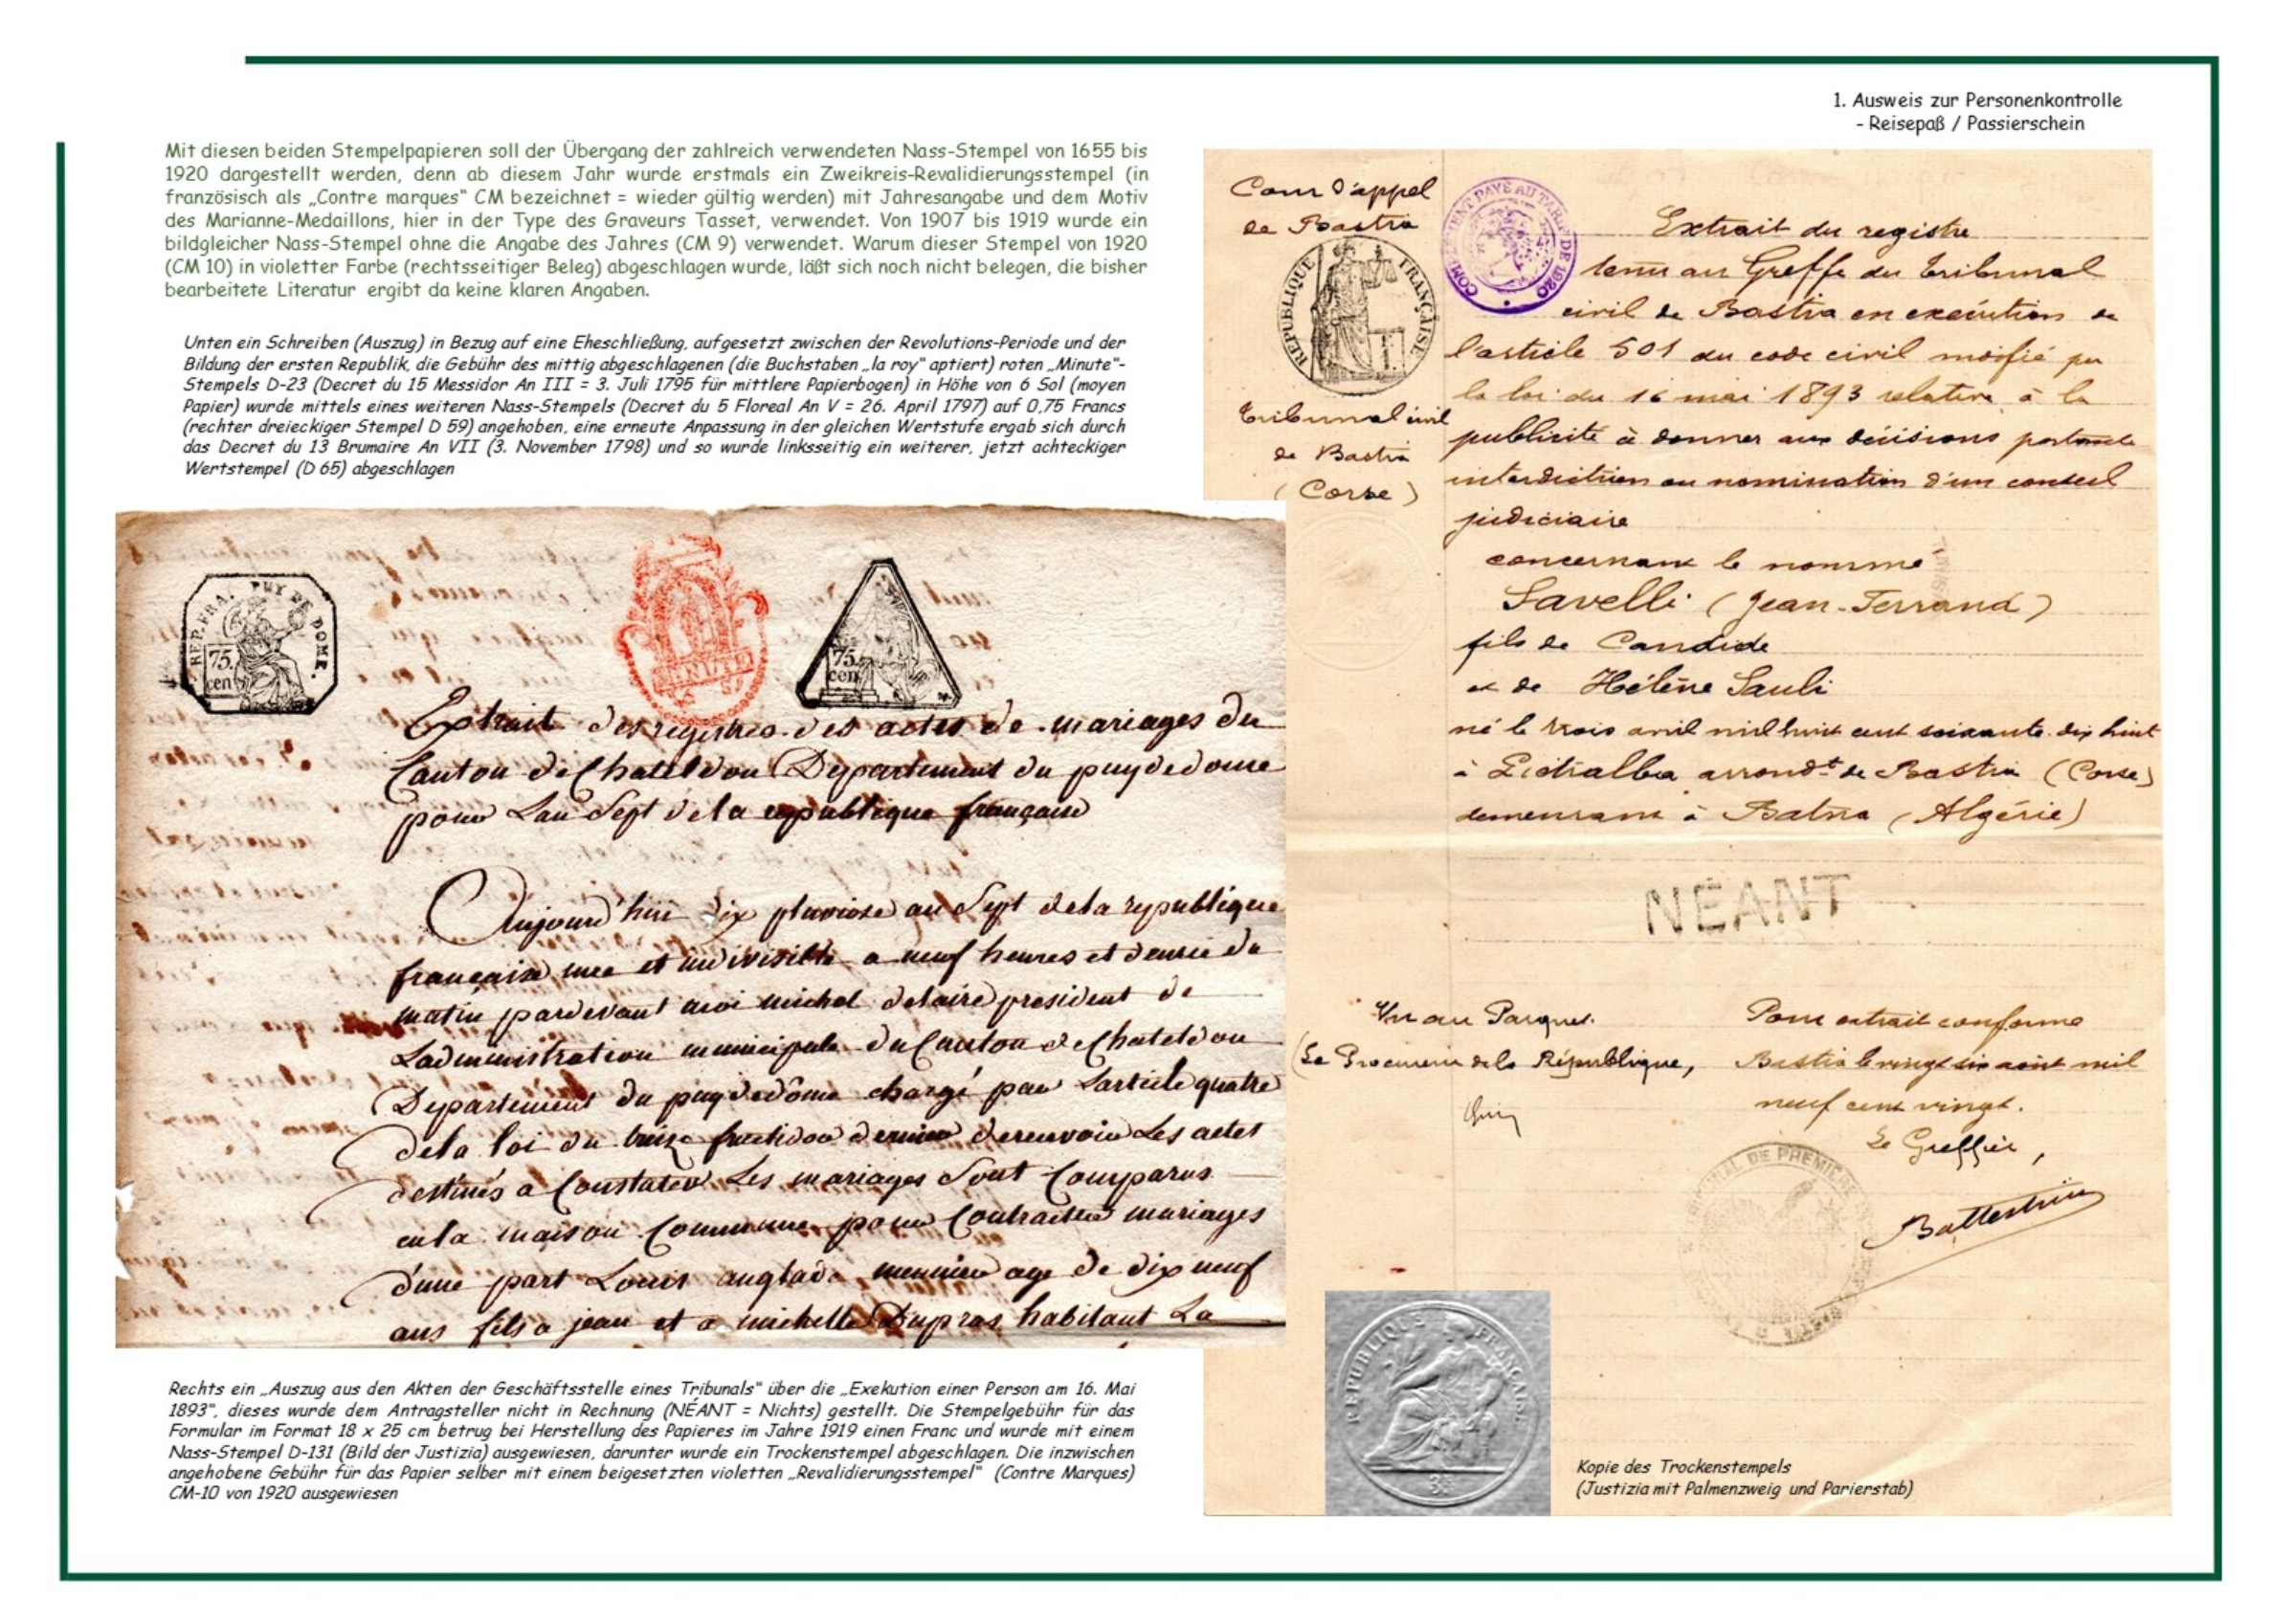 1. Ausweis zur Personenkontrolle
- Reisepaß / Passierschein
Mit diesen beiden Stempelpapieren soll der Übergang der zahlreich verwendeten Nass-Stempel von 1655 bis
1920 dargestellt werden, denn ab diesem Jahr wurde erstmals ein Zweikreis-Revalidierungsstempel (in
französisch als „Contre marques" CM bezeichnet = wieder gültig werden) mit Jahresangabe und dem Motiv
des Marianne-Medaillons, hier in der Type des Graveurs Tasset, verwendet. Von 1907 bis 1919 wurde ein
bildgleicher Nass-Stempel ohne die Angabe des Jahres (CM 9) verwendet. Warum dieser Stempel von 1920
(CM 10) in violetter Farbe (rechtsseitiger Beleg) abgeschlagen wurde, läßt sich noch nicht belegen, die bisher
bearbeitete Literatur ergibt da keine klaren Angaben.
Unten ein Schreiben (Auszug) in Bezug auf eine Eheschließung, aufgesetzt zwischen der Revolutions-Periode und der
Bildung der ersten Republik, die Gebühr des mittig abgeschlagenen (die Buchstaben „la roy" aptiert) roten „Minute"-
Stempels D-23 (Decret du 15 Messidor An III = 3. Juli 1795 für mittlere Papierbogen) in Höhe von 6 Sol (moyen
Papier) wurde mittels eines weiteren Nass-Stempels (Decret du 5 Floreal An V = 26. April 1797) auf 0,75 Francs
(rechter dreieckiger Stempel D 59) angehoben, eine erneute Anpassung in der gleichen Wertstufe ergab sich durch
das Decret du 13 Brumaire An VII (3. November 1798) und so wurde linksseitig ein weiterer, jetzt achteckiger
Wertstempel (D 65) abgeschlagen
REP. FRA. PUY DE DOME.
75.
cen
MINUTE
75.
cen
Extrait des registres des actes de mariages du
Canton de Chateldon Departement du puydedome
pour Lan Sept de la republique française
Aujourd'hui dix pluviose an Sept dela republique
française une et indivisible a neuf heures et demie du
matin pardevant moi michel delaire president de
Ladministration municipale du Canton de Chateldon
Departement du puydedôme chargé par Larticle quatre
dela loi du treize fructidor dernier derecevoir Les actes
destinés a Constater Les mariages Sont Comparus
enla maison Commune pour Contracter mariages
d'une part Louis anglade meunier age de dix neuf
ans fils a jean et a michelle Dupras habitant La
Cour d'appel
de Bastia
COMPLEMENT PAYÉ AU TARIF DE 1920
REPUBLIQUE FRANÇAISE
Tribunal civil
de Bastia
(Corse)
Extrait du registre
tenu au Greffe du tribunal
civil de Bastia en exécution de
l'article 501 du code civil modifié par
la loi du 16 mai 1893 relative à la
publicité à donner aux décisions portant
interdiction ou nomination d'un conseil
judiciaire
concernant le nommé
Savelli (Jean-Ferrand)
fils de Candide
et de Hélène Sauli
né le trois avril mil huit cent soixante dix huit
à Pietralba arrondt de Bastia (Corse)
demeurant à Batna (Algérie)
NÉANT
Vu au Parquet.
Le Procureur de la République,
Pour extrait conforme
Bastia le vingt six août mil
neuf cent vingt.
Le Greffier,
TRIBUNAL DE PREMIÈRE
BASTIA
Battestini
REPUBLIQUE FRANÇAISE
Kopie des Trockenstempels
(Justizia mit Palmenzweig und Parierstab)
Rechts ein „Auszug aus den Akten der Geschäftsstelle eines Tribunals" über die „Exekution einer Person am 16. Mai
1893", dieses wurde dem Antragsteller nicht in Rechnung (NÉANT = Nichts) gestellt. Die Stempelgebühr für das
Formular im Format 18 x 25 cm betrug bei Herstellung des Papieres im Jahre 1919 einen Franc und wurde mit einem
Nass-Stempel D-131 (Bild der Justizia) ausgewiesen, darunter wurde ein Trockenstempel abgeschlagen. Die inzwischen
angehobene Gebühr für das Papier selber mit einem beigesetzten violetten „Revalidierungsstempel" (Contre Marques)
CM-10 von 1920 ausgewiesen